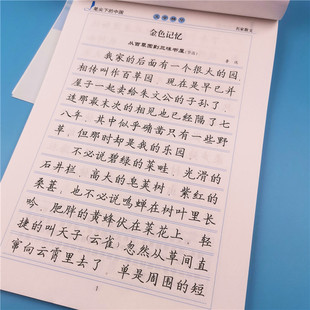 金色记忆
从百草园到三味书屋(节选)
鲁迅
我家的后面有一个很大的园，
相传叫作百草园。现在是早已并
屋子一起卖给朱文公的子孙了，
连那最末次的相见也已经隔了七
八年，其中似乎确凿只有一些野
草，但那时却是我的乐园。
不必说碧绿的菜畦，光滑的
石井栏，高大的皂荚树，紫红的
桑葚，也不必说鸣蝉在树叶里长
吟，肥胖的黄蜂伏在菜花上，轻
捷的叫天子（云雀）忽然从草间直
窜向云霄里去了。单是周围的短
1